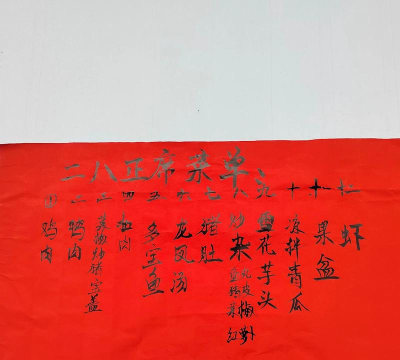 二八正席菜单
一 鸡肉
二 鸭肉
三
四 扣肉
五 多宝鱼
六 龙凤汤
七 猪肚
八 炒杂
九 雪花芋头
十 凉拌青瓜
十一 果盆
十二 虾